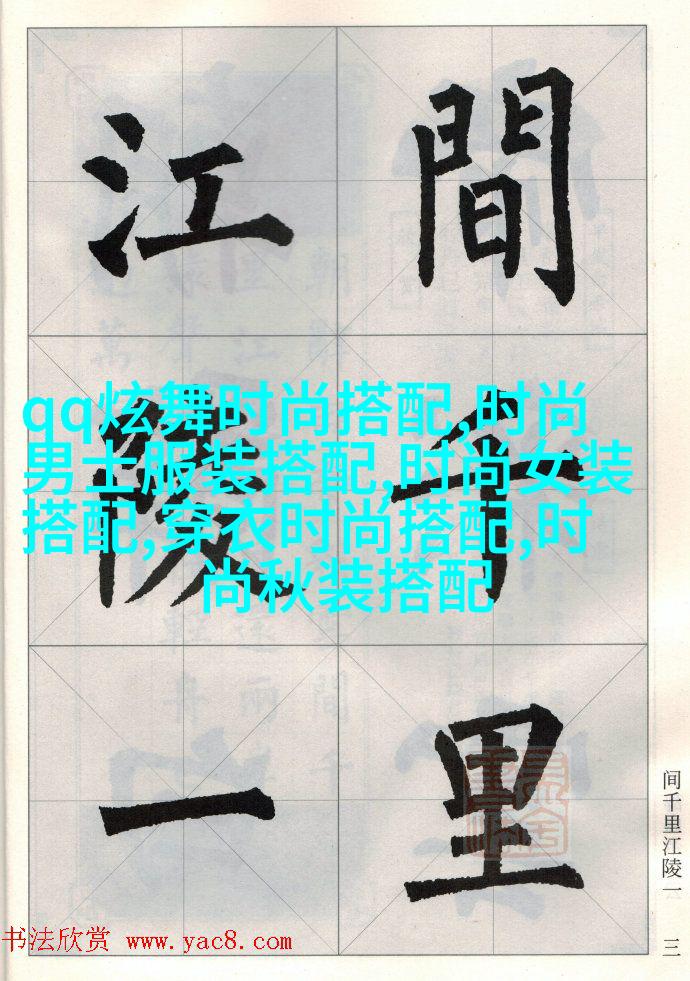 間千里
江陵一
qq炫舞时尚搭配,时尚
男士服装搭配,时尚女装
搭配,穿衣时尚搭配,时
尚秋装搭配
间千里江陵一
三
书法欣赏 www.yac8.com